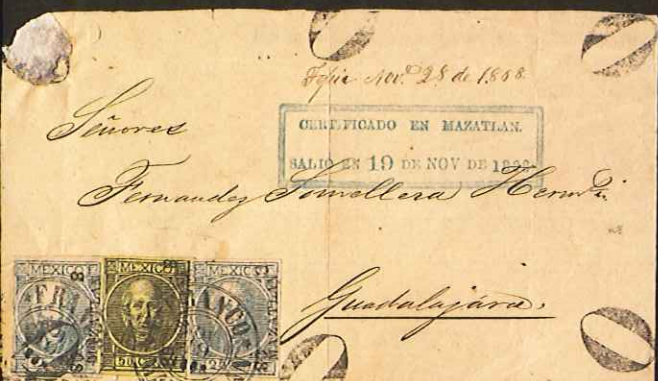 Tepic Nov.º 28 de 1868
Señores
CERTIFICADO EN MAZATLAN.
SALIO EN 19 DE NOV DE
Fernandez Somellera Herm.
Guadalajara.
MEXICO MEXICO MEXICO
FRANCO
50 C